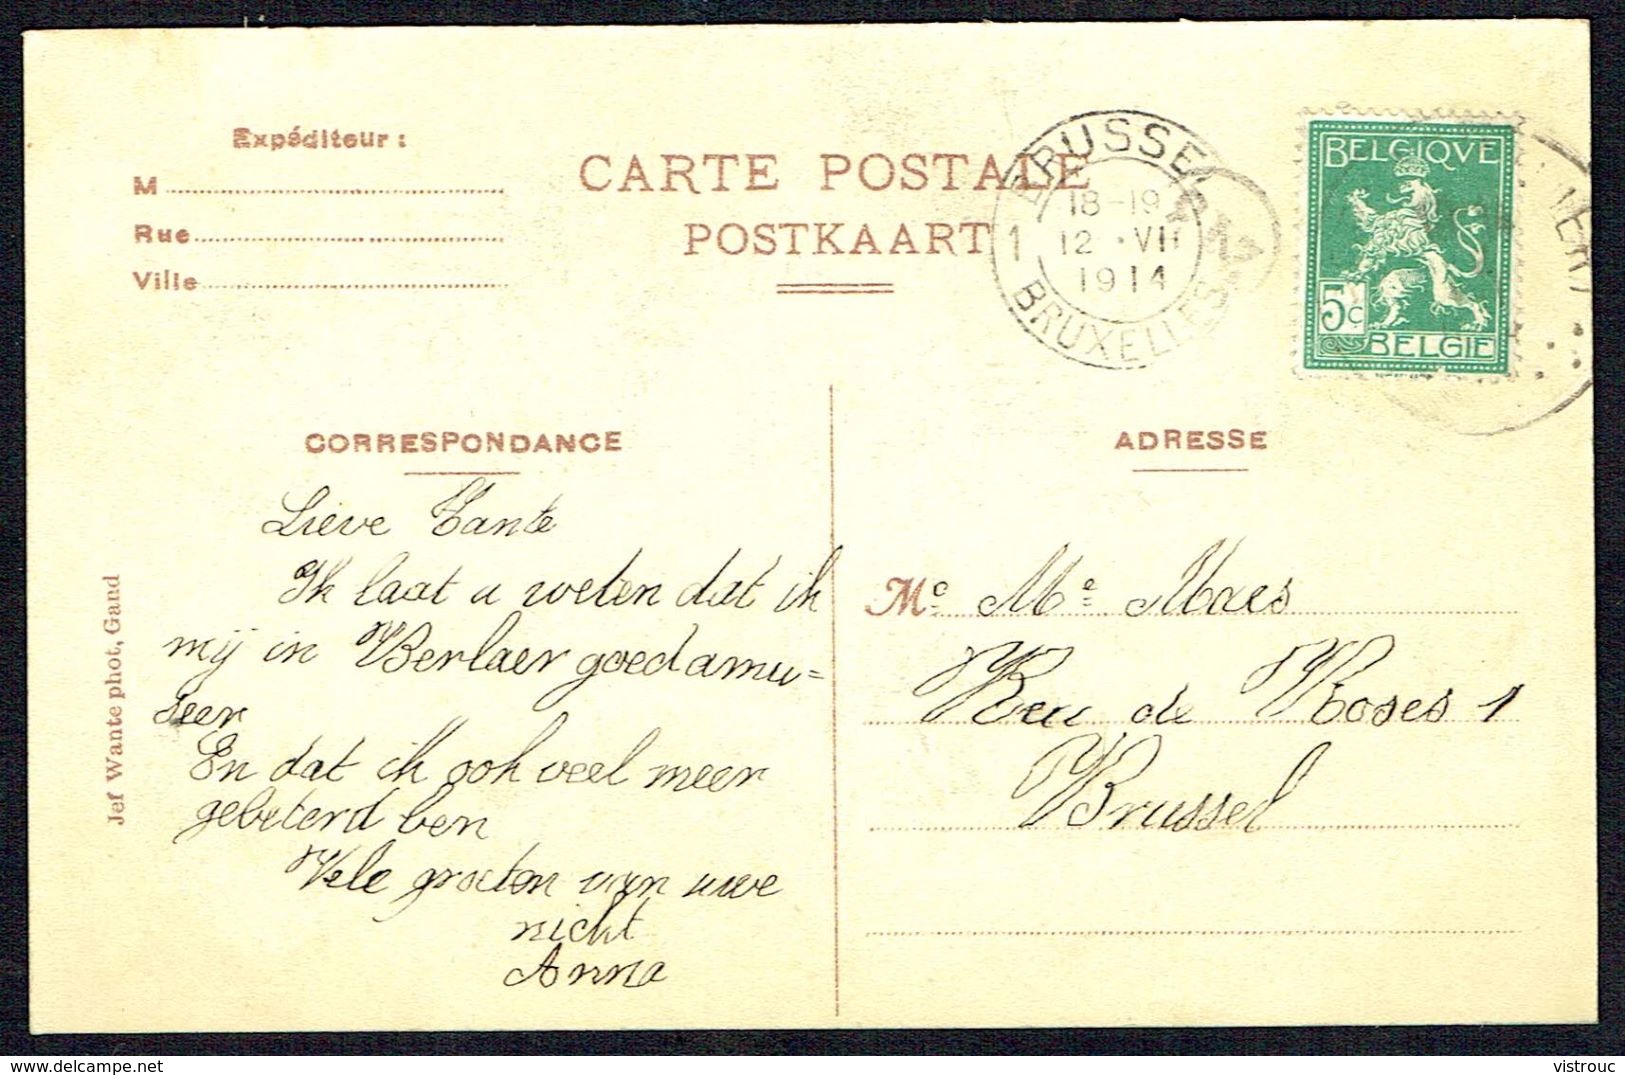 Expéditeur :
M
Rue
Ville
CARTE POSTALE
POSTKAART
BRUSSEL
18-19
1 12 · VII
1914
BRUXELLES
BELGIQVE
5c
BELGIE
CORRESPONDANCE
ADRESSE
Lieve Tante
Ik laat u weten dat ik
mij in Berlaer goed amu=
seer
En dat ik ook veel meer
gebeterd ben
Vele groeten van uwe
nicht
Anna
Mc Me Maes
Rue de Roses 1
Brussel
Jef Wante phot, Gand
vistrouc
delcampe.net